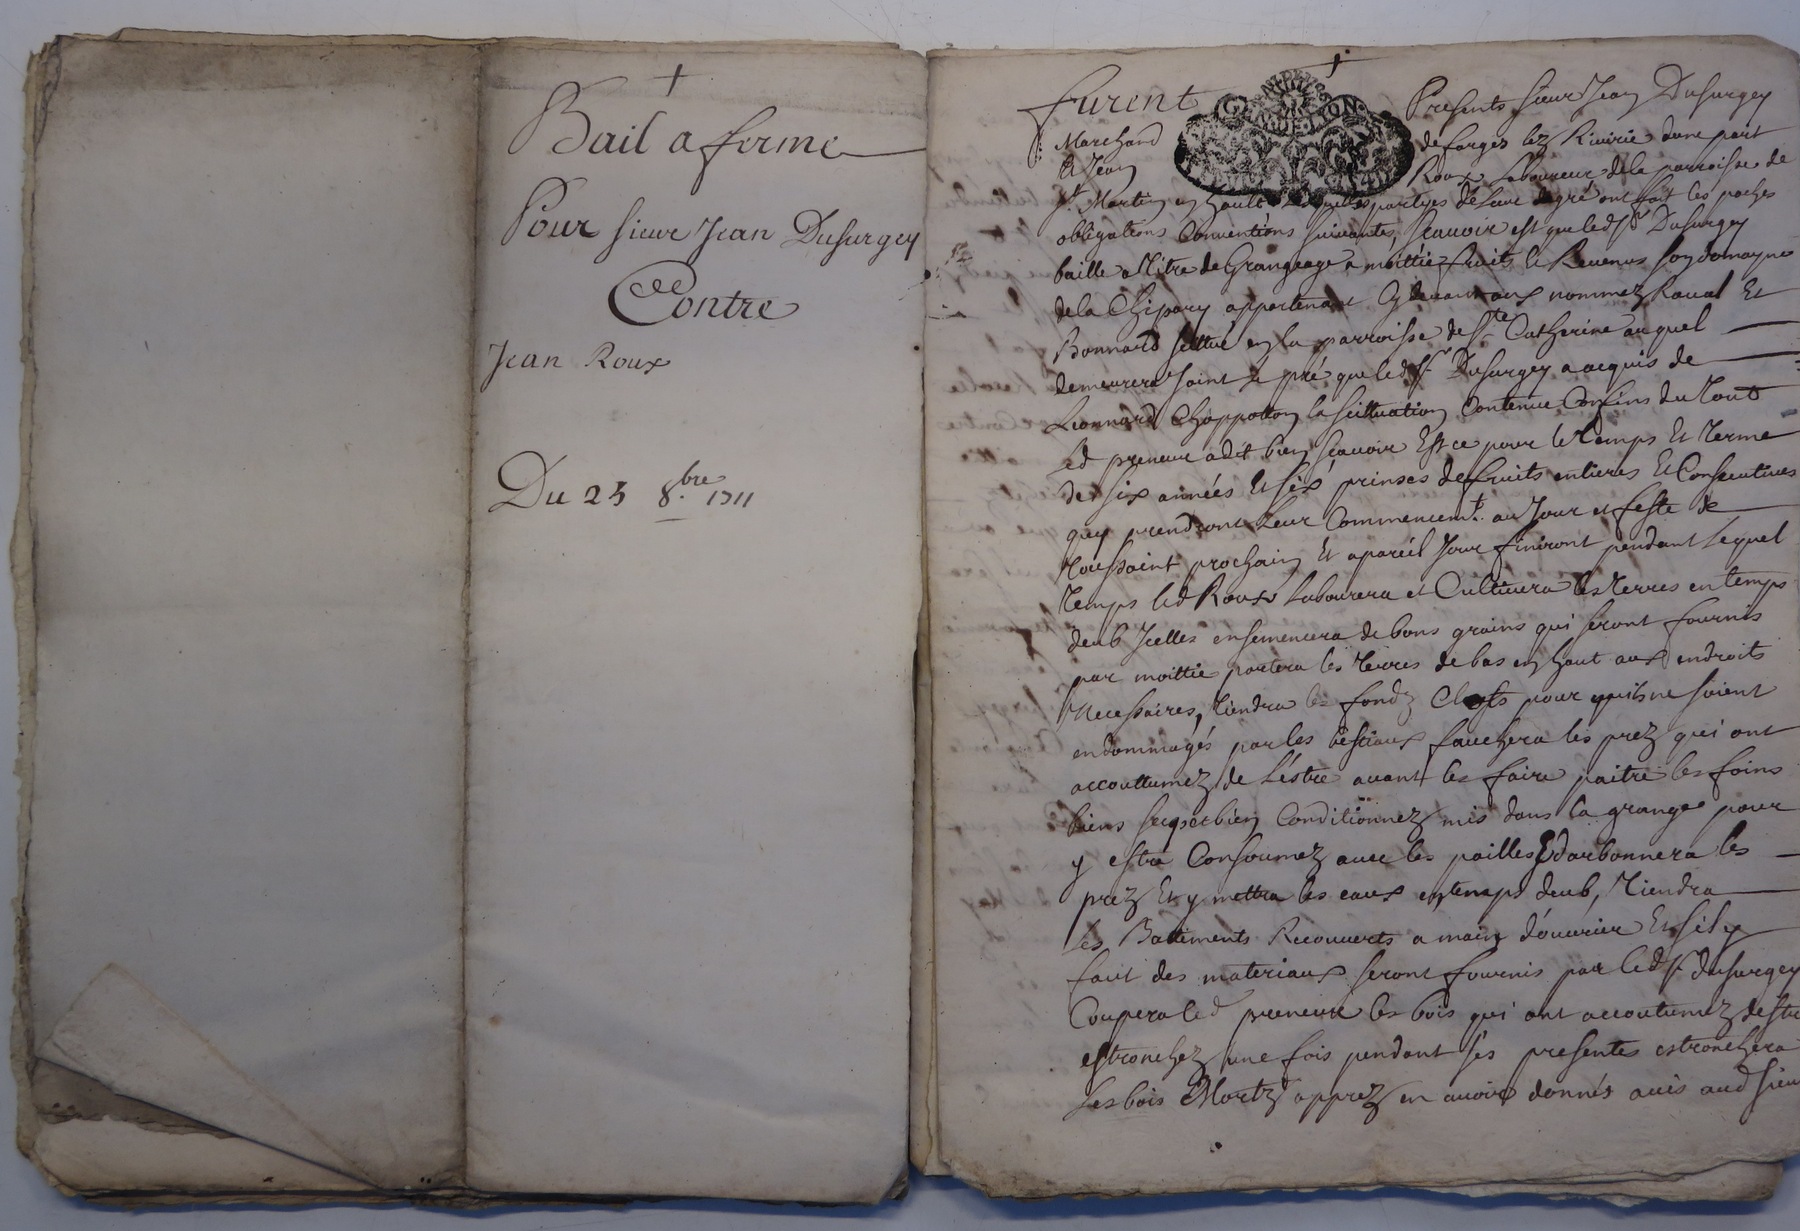 Bail a ferme
Pour sieur Jean Dusurgey
Contre
Jean Roux
Du 25 8.bre 1711
furent Presents sieur Jean Dusurgey
Marchand de forges lez Riuirie dune part
Et Jean Roux Laboureur dela parroisse de
St. Martin en hault Lesquelles partyes de Leur degré ont fait les paches
obligations Conuentions suiuantes, Scauoir est que led Sr Dusurgey
baille a Titre de Grangeage a moittiez fruits et Reuenus son domayne
dela Chipary appartenant Cy deuant aux nommez Raual Et
Bonnard scittué en la parroisse de Ste Catherine auquel
demeurera Joint le pré que led Sr Dusurgey a acquis de
Leonnard Chappotton la scittuation Contenue Confins du Tout
Led preneur a dit bien scauoir Est ce pour le Temps Et Terme
de six années Et six prinses de fruits entieres Et Consecutiues
quy prendront Leur Commencemt. au Jour et feste de
Toussaint prochain Et apareil Jour finiront pendant Lequel
Temps led Roux Labourera et Cultiuera les Terres en temps
deub Jcelles ensemencera de bons grains qui seront fournis
par moittie portera les Terres de bas en haut aux endroits
Necessaires, Tiendra les fondz Clos pour quils ne soient
endommagés par les bestiaux fauchera les prez qui ont
accouttumez de L'estre auant les faire paitre les foins
biens secqs et bien Conditionnez mis dans la grange pour
y estre Consoumez auec les pailles Edarbonnera les
prez Et y mettra les eaux en temps deub, Tiendra
les Battiments Recouuerts a main d'ouurier Et sil y
faut des materiaux seront fournis par led Sr dusurgey
Coupera led preneur les bois qui ont accoutumez destre
estronchez une fois pendant ses presentes estronchera
Les bois Mortz apprez en auoir donnés auis aud sieur